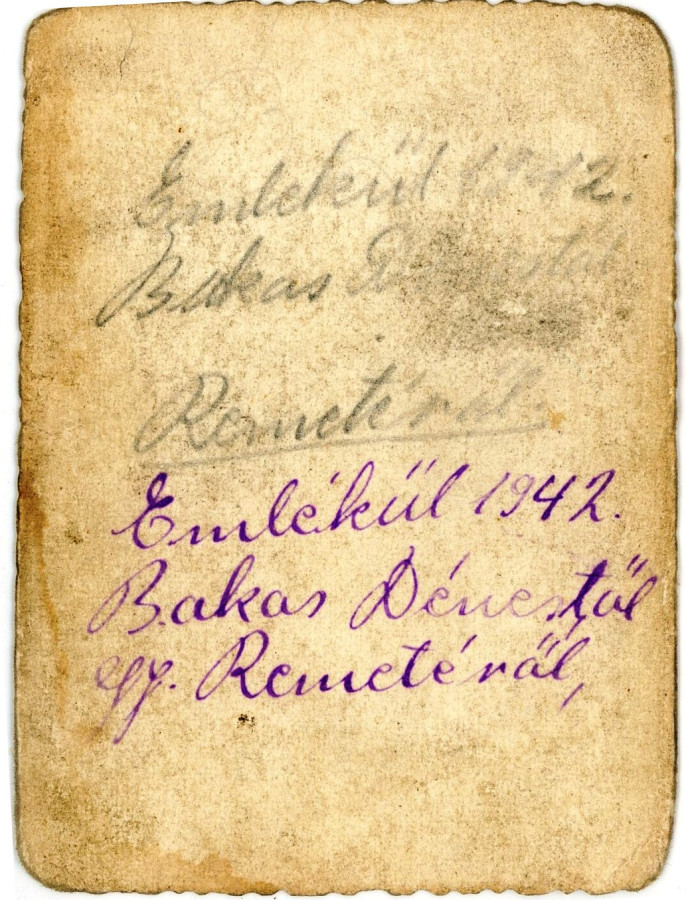 Emlékül 1942.
Bakas Dénestöl
Remetéröl.
Emlékül 1942.
Bakas Dénestöl
gy. Remetéröl,